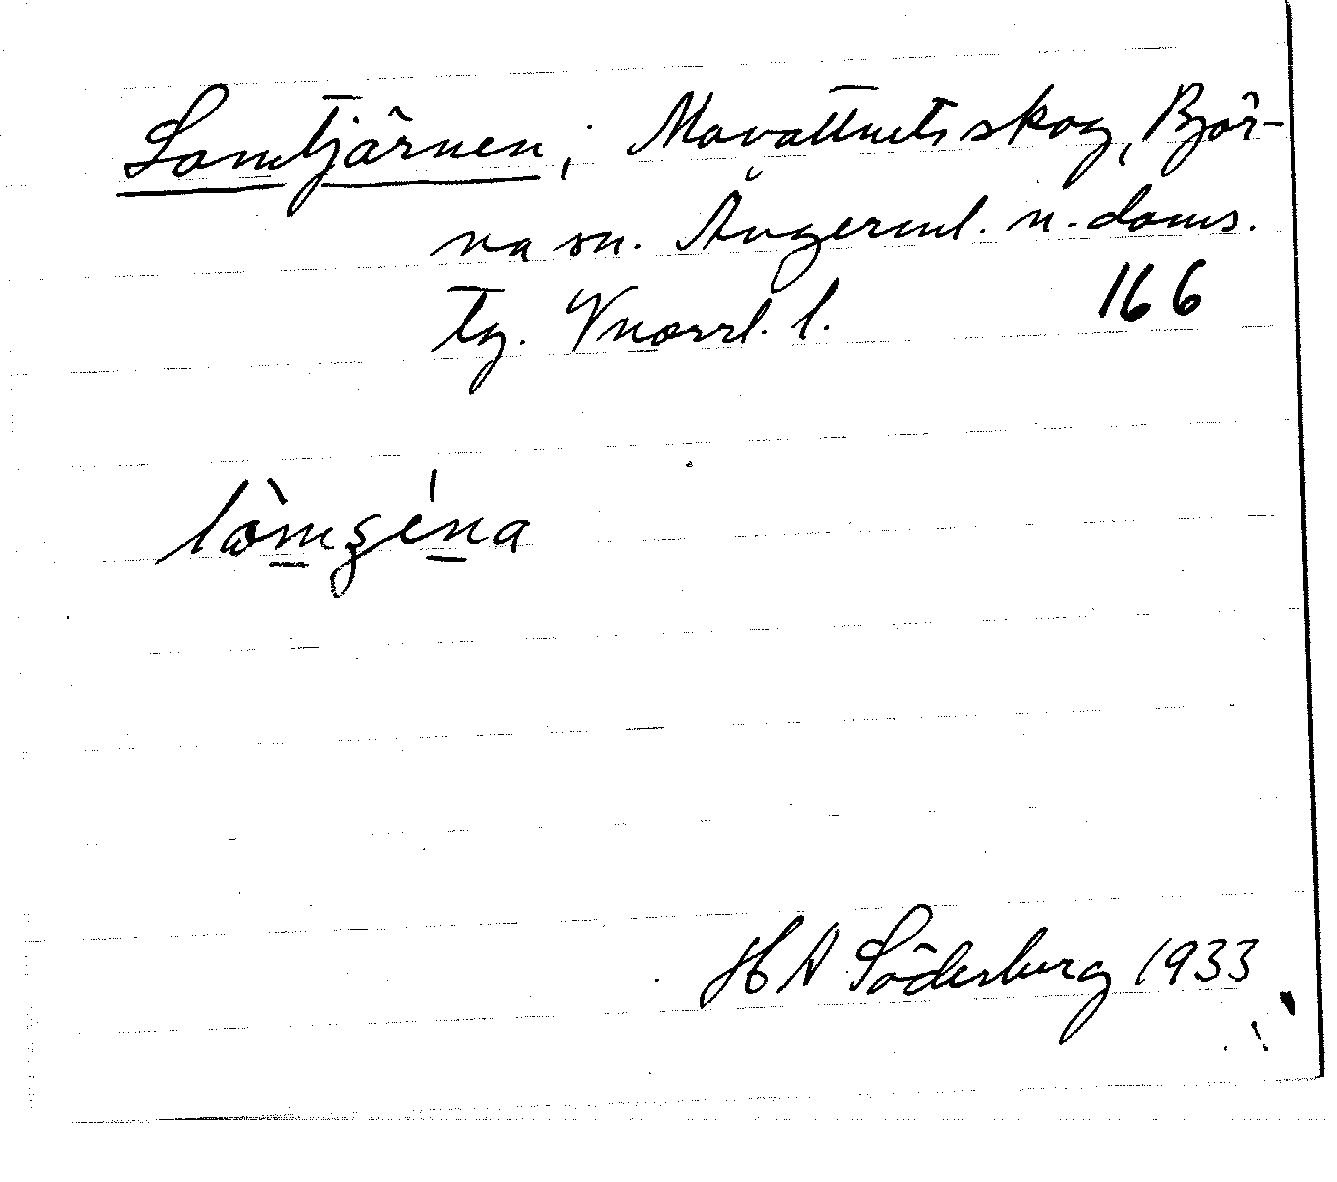 Lomtjärnen; Movattnets skog, Björ-
na sn. Ångerml. n. doms.
tg. Vnorrl. l. 166
lòmşéna
H A Söderberg 1933